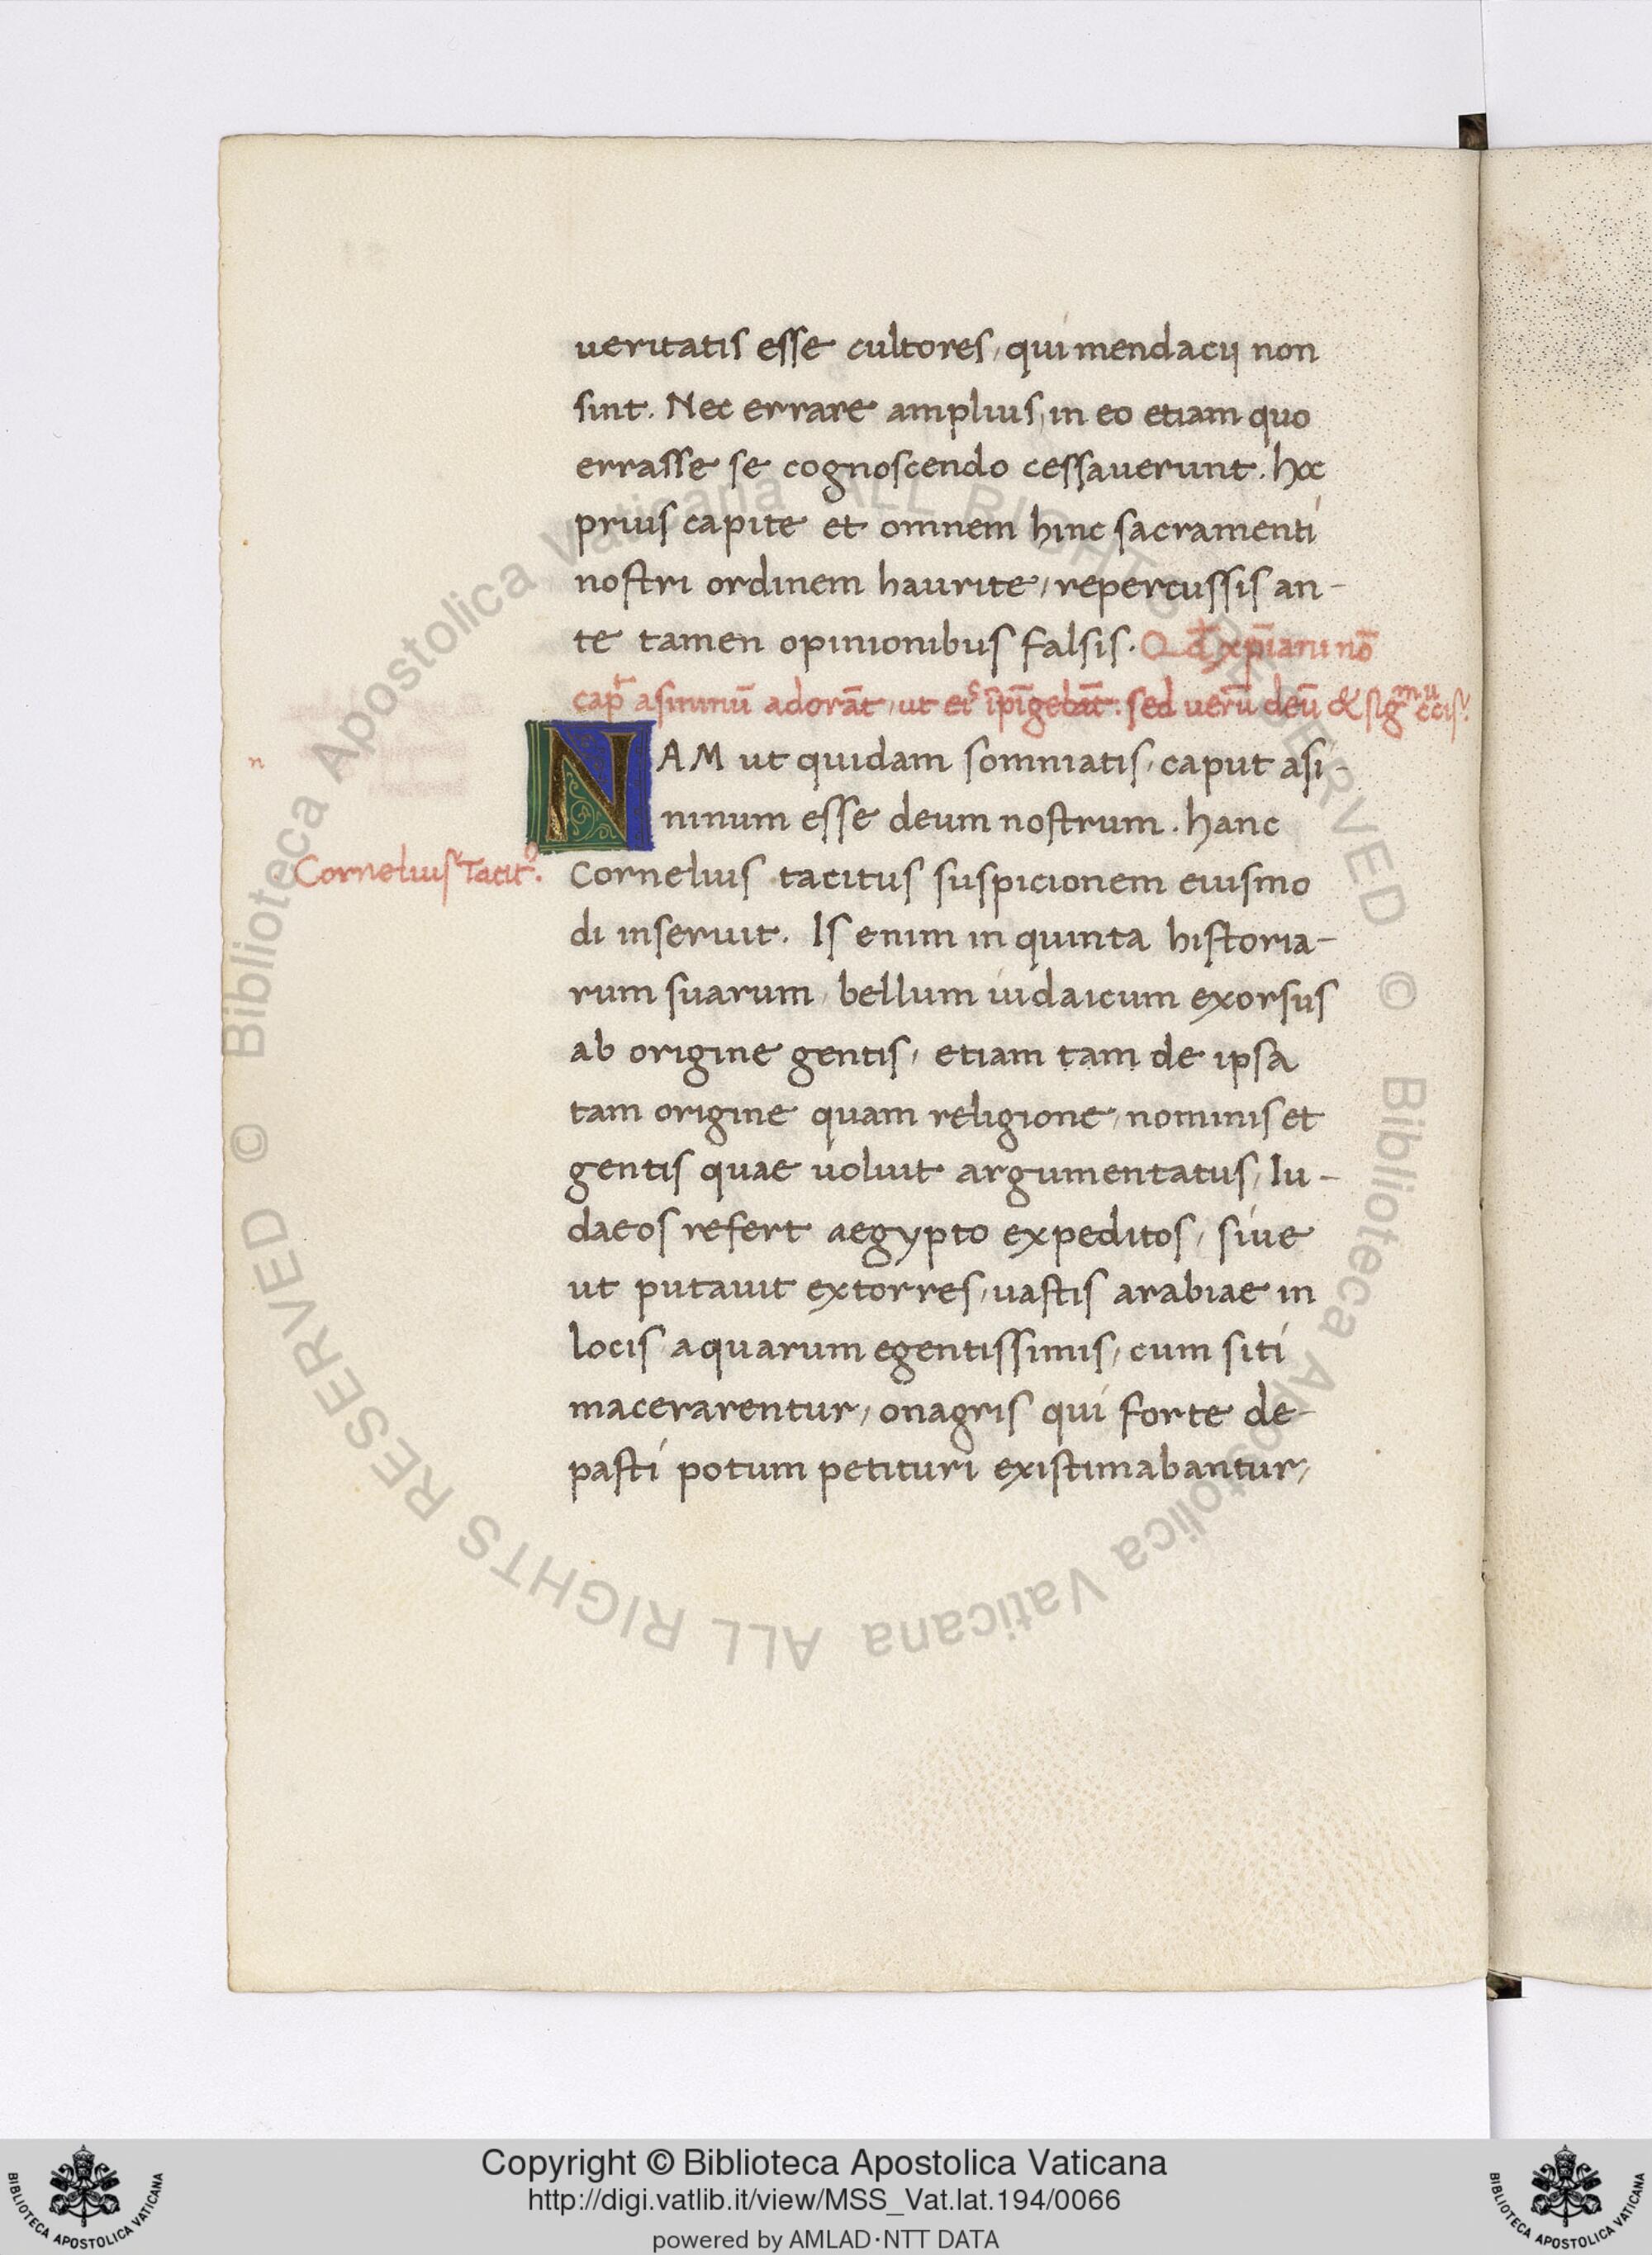 ueritatis esse cultores, qui mendacij non
sint. Nec errare amplius, in eo etiam quo
errasse se cognoscendo cessauerunt. hoc
prius capite et omnem hinc sacramenti
nostri ordinem haurite, repercussis an-
te tamen opinionibus falsis. Qđ xp̄iani nō
cap̄ asininū adorāt, ut eis īpīgebāt. sed uerū deū &
NAM ut quidam somniatis, caput asi-
ninum esse deum nostrum. hanc
Cornelius Tacit9.
Cornelius tacitus suspicionem eiusmo
di inseruit. Is enim in quinta historia-
rum suarum, bellum iudaicum exorsus
ab origine gentis, etiam tam de ipsa
tam origine quam religione, nominis et
gentis quae uoluit argumentatus, Iu-
daeos refert aegypto expeditos, siue
ut putauit extorres, uastis arabiae in
locis aquarum egentissimis, cum siti
macerarentur, onagris qui forte de-
pasti potum petituri existimabantur,
© Biblioteca Apostolica Vaticana ALL RIGHTS RESERVED
© Biblioteca Apostolica Vaticana ALL RIGHTS RESERVED
Copyright © Biblioteca Apostolica Vaticana
http://digi.vatlib.it/view/MSS_Vat.lat.194/0066
powered by AMLAD·NTT DATA
BIBLIOTECA APOSTOLICA VATICANA
BIBLIOTECA APOSTOLICA VATICANA